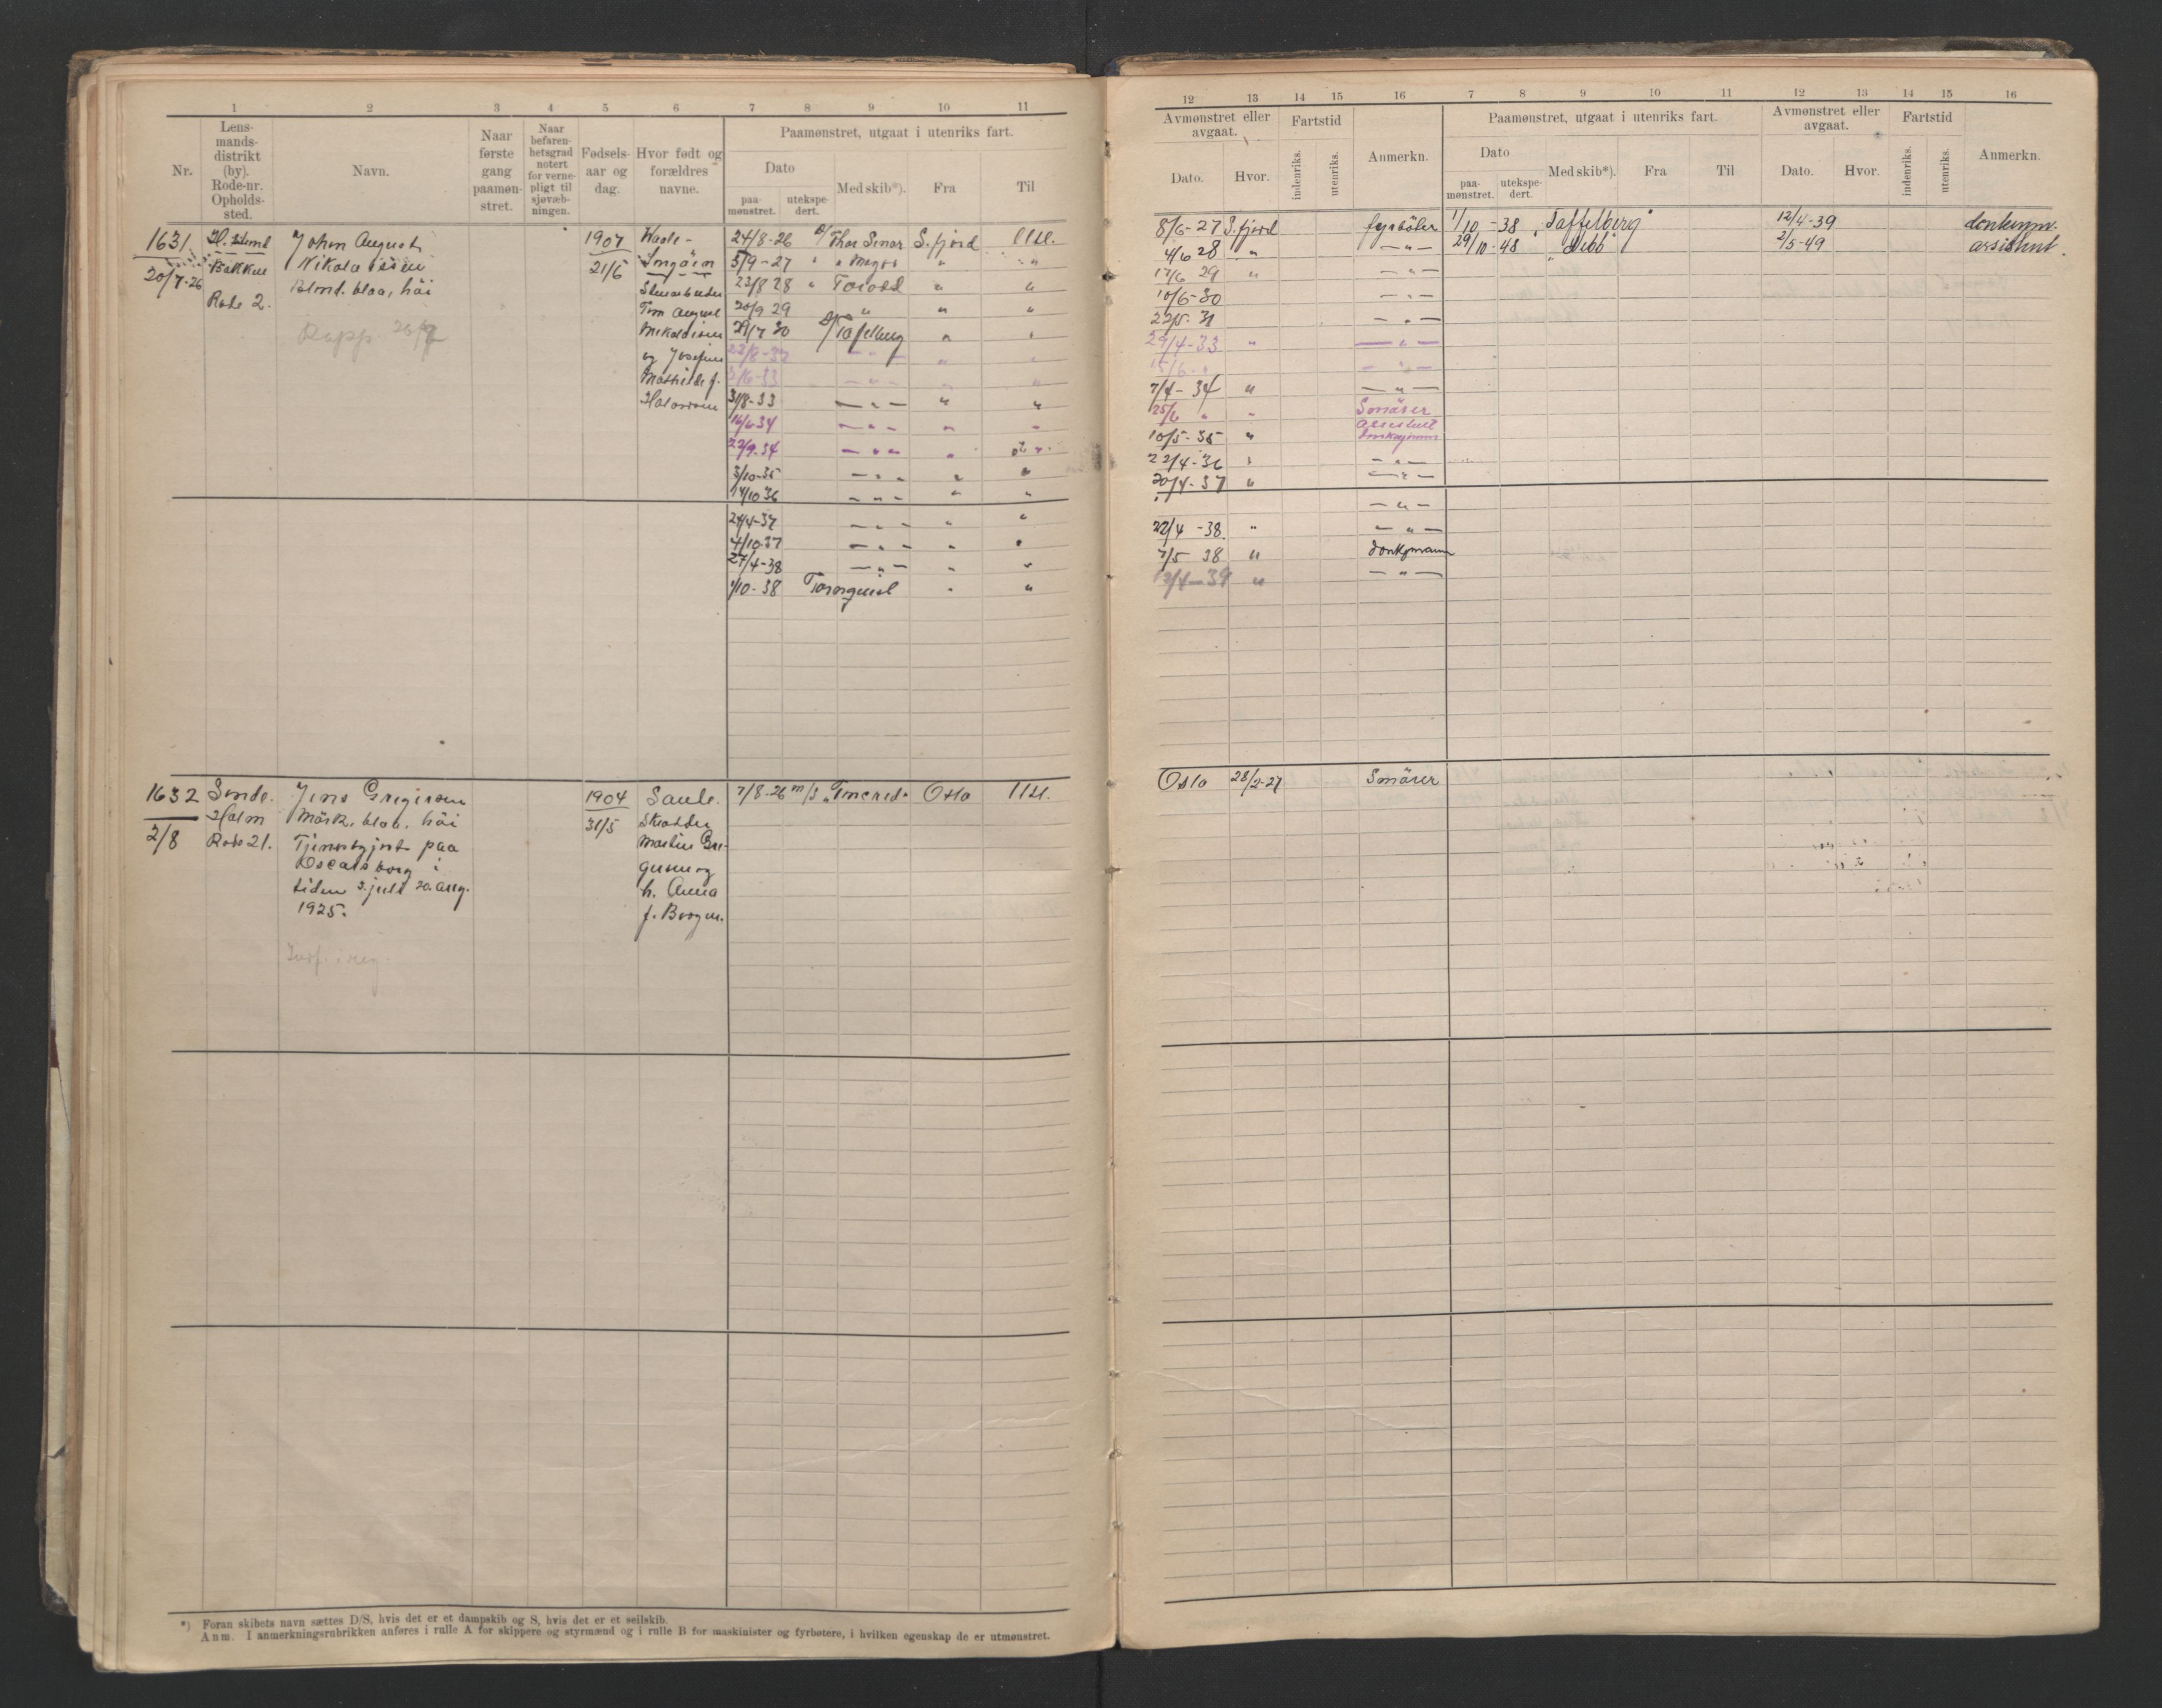 1 2 3 4 5 6 7 8 9 10 11
Nr.
Lens-
mands-
distrikt
(by).
Rode-nr.
Opholds-
sted.
Navn.
Naar
første
gang
paamøn-
stret.
Naar
befaren-
hetsgrad
notert
for verne-
pligt til
sjøvæb-
ningen.
Fødsels-
aar og
dag.
Hvor født og
forældres
navne.
Paamønstret, utgaat i utenriks fart.
Dato
paa-
mønstret.
utekspe-
dert.
Med skib*).
Fra
Til
1631
20/7-26
Bakken
Rode 2.
John August
Nikolaisen
Blond. blaa, höi
Rapp.
1907
21/5
Tom August
Nikolaisen
og Josefine
Mathilde f.
Halvorsen
24/8-26 D/ Thor Einar S. fjord Utl.
5/9-27 " " " "
22/8 28 " Torodd " "
20/9 29 " " "
29/7 30 D/ Tafelberg " "
22/8-32 — " — " "
2/6-33 — " — " "
31/8-33 — " — " "
16/6 34 — " — " "
22/9-34 — " — "
3/10-35 — " — " "
14/10 36 — " — " "
24/4-37 — " — " "
4/10-37 — " — " "
27/4-38 — " — " "
1/10-38 Tornquist " "
1632
2/8
Sende.
Holm
Rode 21.
Jens Gregersen
Mörk. blaa. höi
Tjenestgjort paa
Oscarsborg i
tiden 3. juli 20. aug.
1925.
1904
31/5
Sande.
Skrædder
Martin Gre-
gersen og
h. Anna
f. Borgen.
7/8-26 m/s Oslo Utl.
*) Foran skibets navn sættes D/S, hvis det er et dampskib og S, hvis det er et seilskib.
Anm. I anmerkningsrubrikken anføres i rulle A for skippere og styrmænd og i rulle B for maskinister og fyrbøtere, i hvilken egenskap de er utmønstret.
12 13 14 15 16 7 8 9 10 11 12 13 14 15 16
Avmønstret eller
avgaat.
Dato.
Hvor.
Fartstid
indenriks.
utenriks.
Anmerkn.
Paamønstret, utgaat i utenriks fart.
Dato
paa-
mønstret.
utekspe-
dert.
Med skib*).
Fra
Til
Avmønstret eller
avgaat.
Dato.
Hvor.
Fartstid
indenriks.
utenriks.
Anmerkn.
8/6-27 S. fjord fyrböter 1/10-38 "Taffelberg" 12/4-39
4/6 28 " — " — 29/10-48 2/5-49 assistent.
17/6 29 " — " —
10/6-30 — " —
22/5-31 — " —
29/4-33 " — " —
15/6- " — " —
7/4-34 " — " —
25/6 " " Smörer
10/5-35 " assistent
donkeymann
22/4-36 " — " —
20/4-37 " — " —
— " —
22/4-38 " — " —
7/5 38 " donkymann
12/4-39 " — " —
Oslo 28/2-27 Smörer